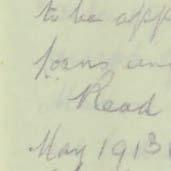 to be app
forms an
Read
May 1913